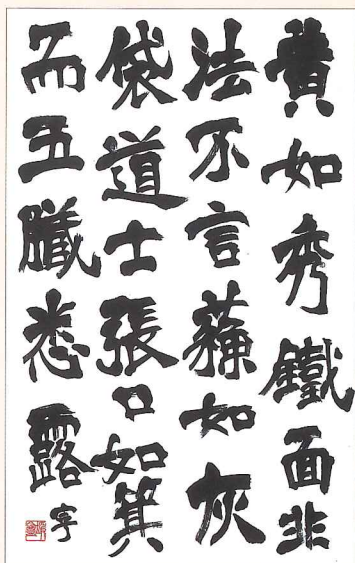 黃如秀鐵面非
法不言蘇如灰
袋道士張口如箕
而五臟悉露 宇